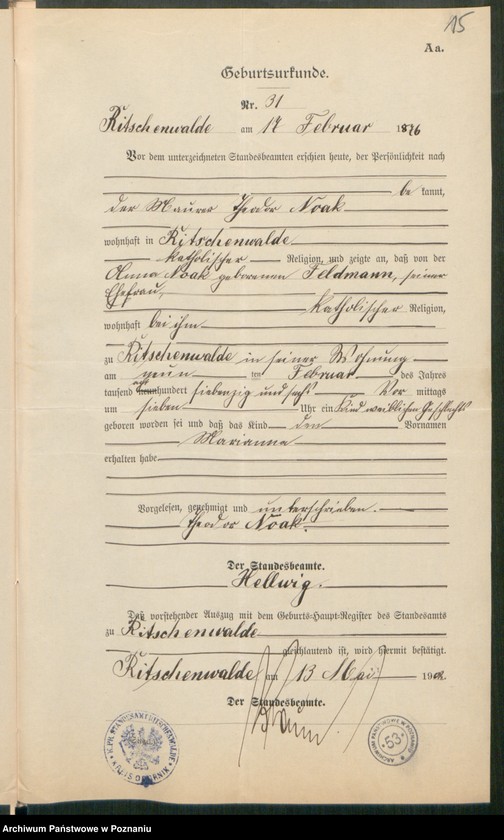 15
Aa.
Geburtsurkunde.
Nr. 31
Ritschenwalde am 17 Februar 1876
Vor dem unterzeichneten Standesbeamten erschien heute, der Persönlichkeit nach
be kannt,
der Maurer Theodor Noak
wohnhaft in Ritschenwalde
katholischer Religion, und zeigte an, daß von der
Anna Noak geborenen Feldmann, seiner
Ehefrau,
katholischer Religion,
wohnhaft bei ihm
zu Ritschenwalde in seiner Wohnung
am neun ten Februar des Jahres
tausend acht hundert siebenzig und sechs Vor mittags
um sieben Uhr ein Kind weiblichen Geschlechts
geboren worden sei und daß das Kind den Vornamen
Marianna
erhalten habe
Vorgelesen, genehmigt und unterschrieben.
Theodor Noak.
Der Standesbeamte.
Hellwig.
Daß vorstehender Auszug mit dem Geburts-Haupt-Register des Standesamts
zu Ritschenwalde
gleichlautend ist, wird hiermit bestätigt.
Ritschenwalde am 13 Mai 190
Der Standesbeamte.
K. PR. STANDESAMT RITSCHENWALDE
KREIS OBORNIK
ARCHIWUM PAŃSTWOWE W POZNANIU
53
Archiwum Państwowe w Poznaniu